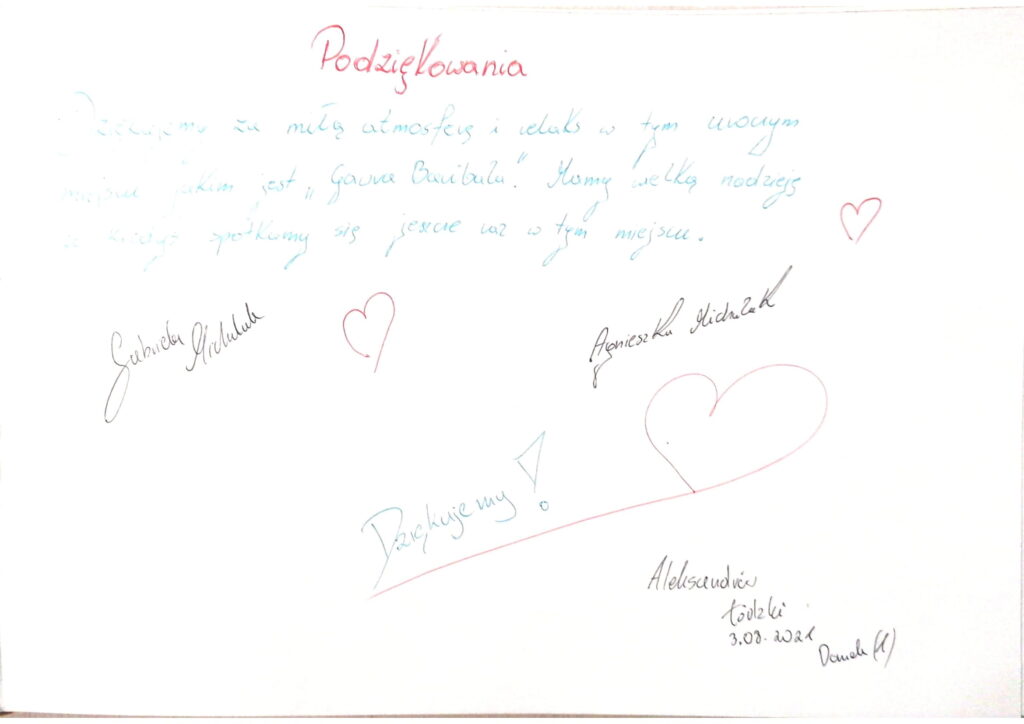 Podziękowania
Dziękujemy za miłą atmosferę i relaks w tym uroczym
miejscu jakim jest „Gawra Baribala". Mamy wielką nadzieję
że kiedyś spotkamy się jeszcze raz w tym miejscu.
Gabriela Michalak
Agnieszka Michalak
Dziękujemy!
Aleksandrów
Łódzki
3.08.2021
Domek